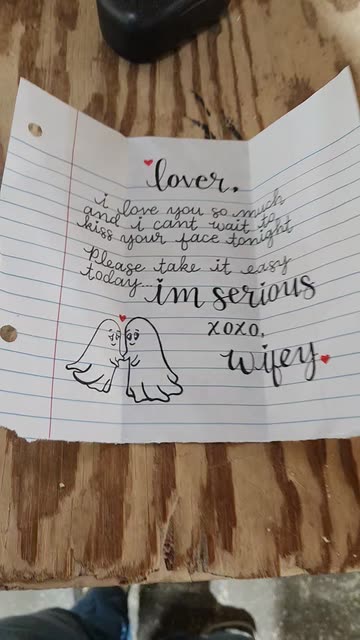 lover,
i love you so much
and i cant wait to
kiss your face tonight
Please take it easy
today... im serious
xoxo,
wifey